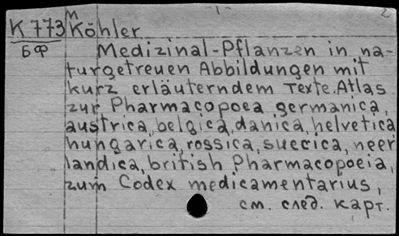 - 1 - 2
м
К 773 Köhler
БФ Medizinal-Pflanzen in na-
turgetreuen Abbildungen mit
kurz erläuterndem Texte. Atlas
zur Pharmacopoea germanica,
austrica, belgica, danica, helvetica
hungarica, rossica, suecica, neer
landica, british Pharmacopoeia,
zum Codex medicamentarius,
см. след. карт.